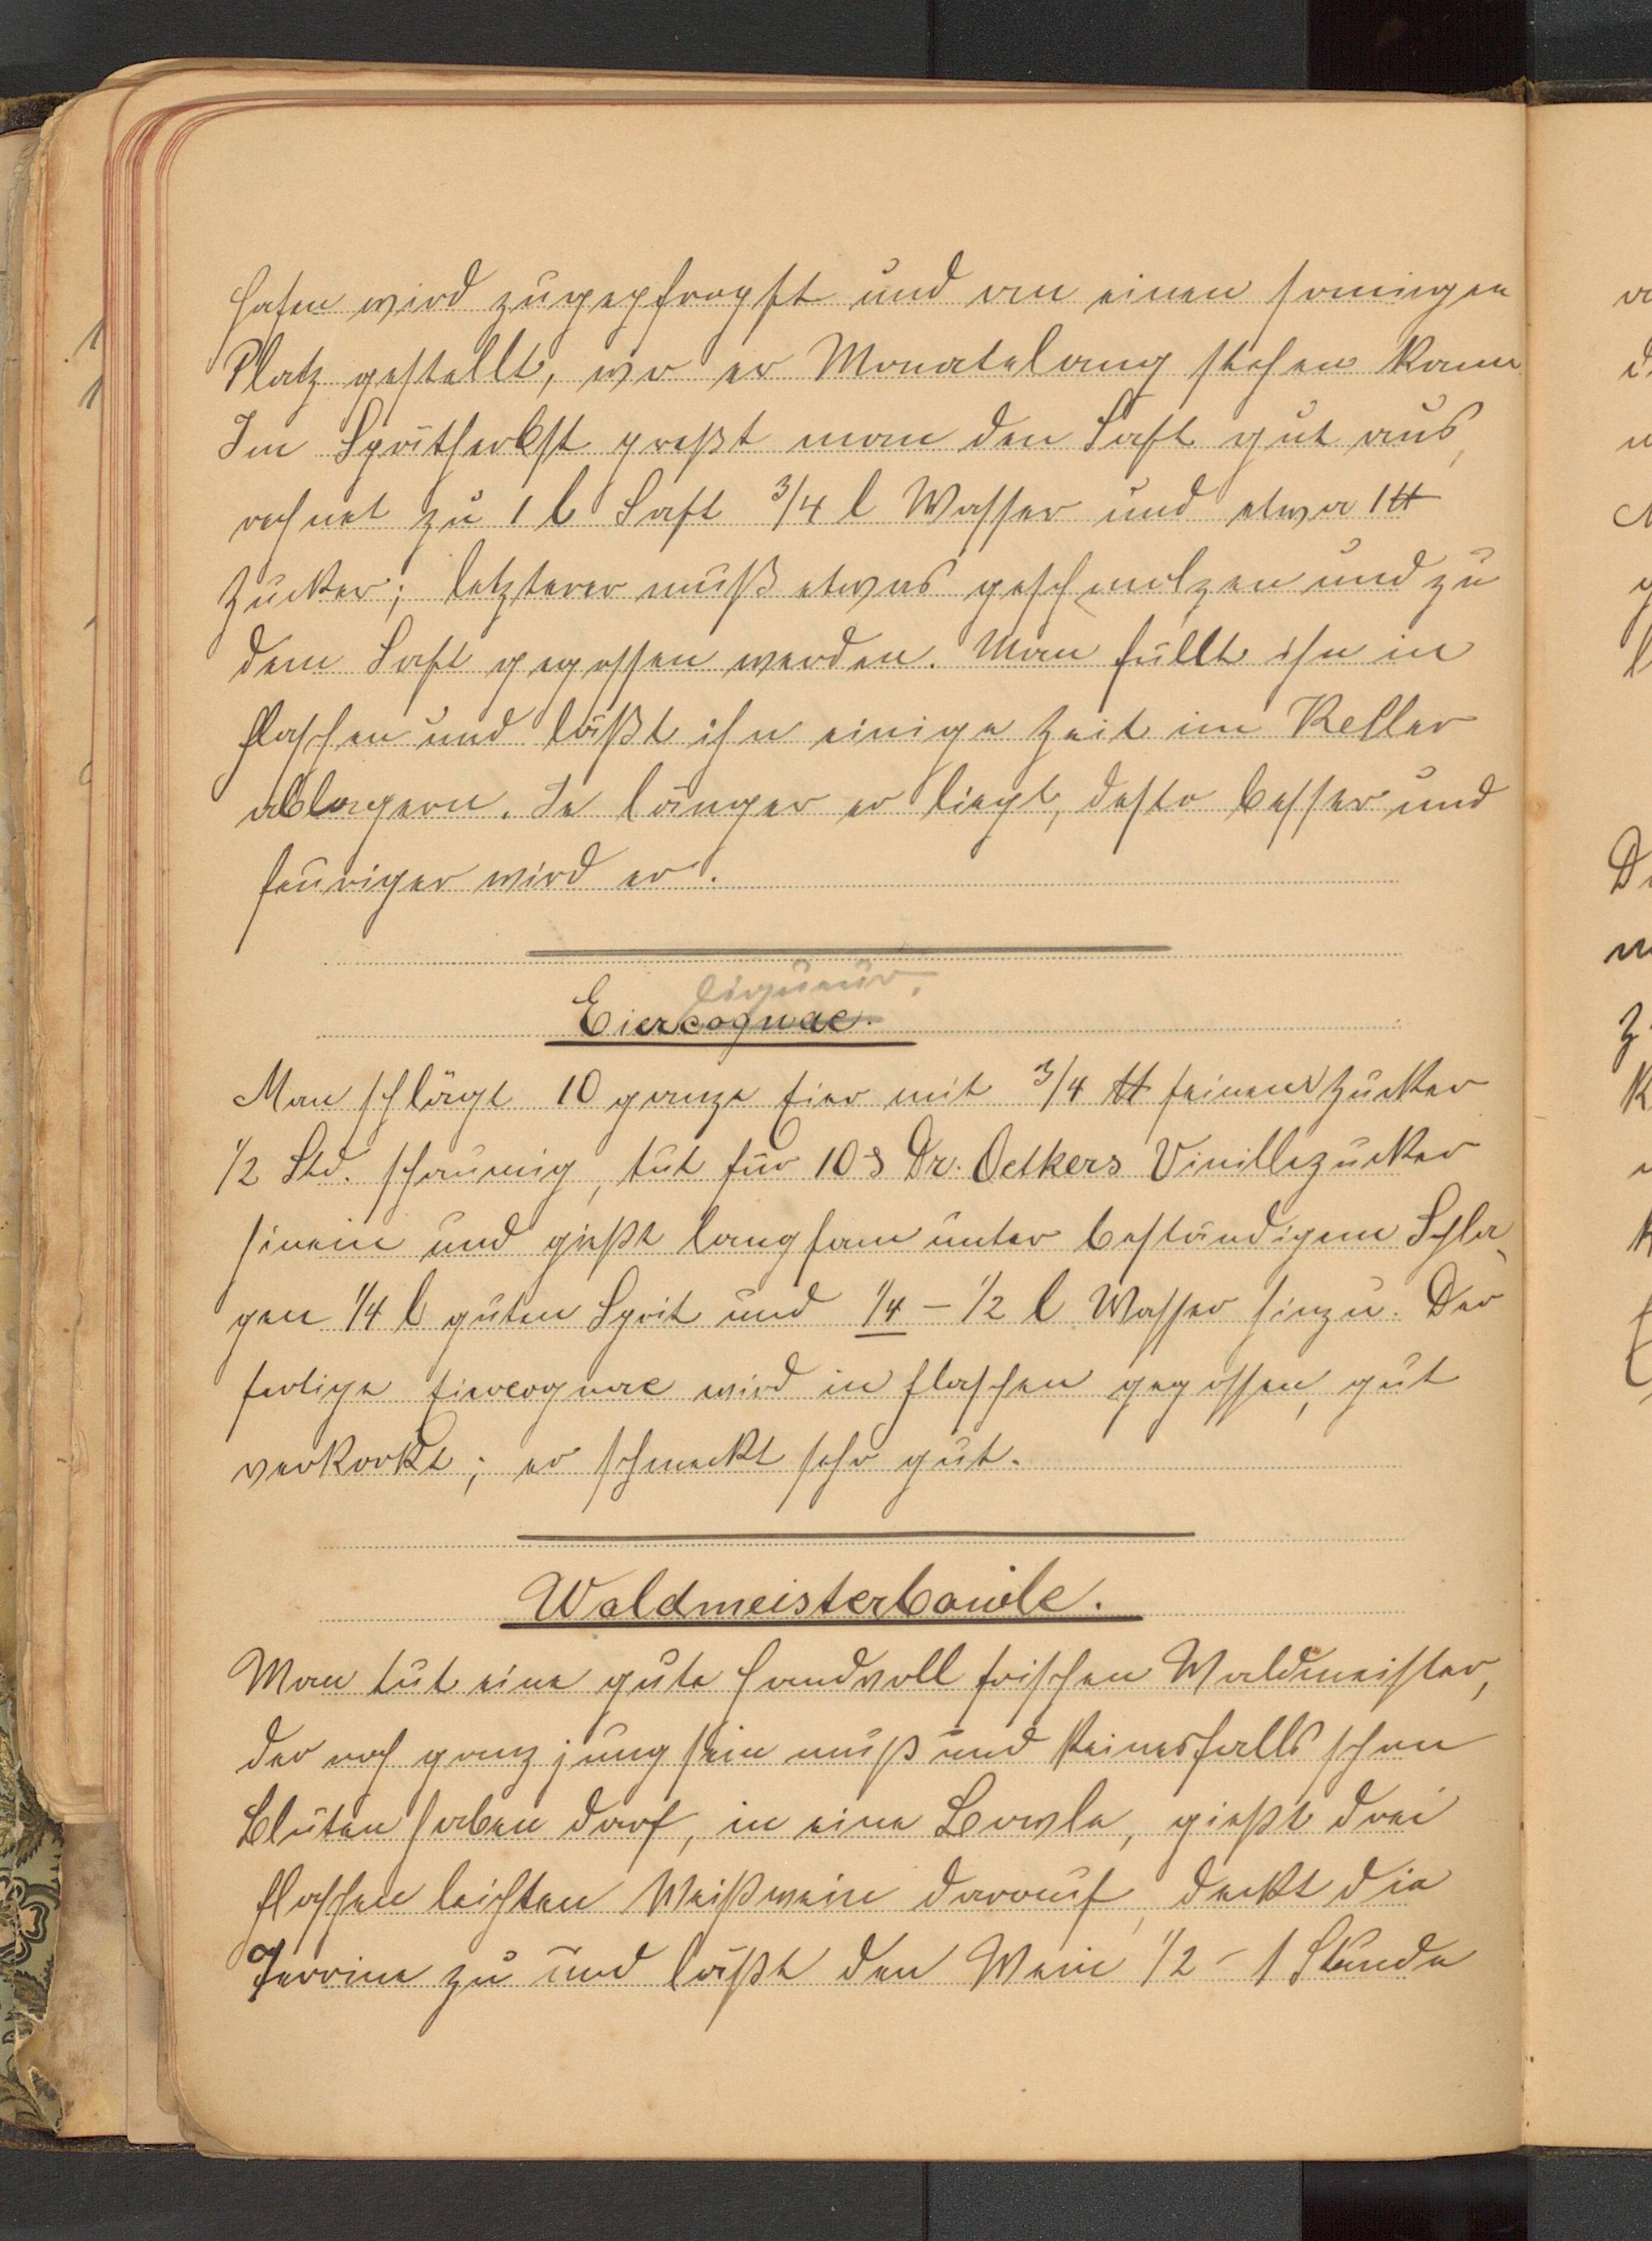 hafen wird zugepfropft und an einen sonnigen
Platz gestellt, wo er Monatelang stehen kann
Im Spätherbst preßt man den Saft gut aus,
rechnet zu 1 l Saft 3/4 l Wasser und etwa 1 ℔
Zucker; letzterer muß etwas geschmolzen und zu
dem Saft gegossen werden. Man füllt ihn in
Flaschen und läßt ihn einige Zeit im Keller
ablagern. Je länger er liegt, desto besser und
feuriger wird er.
liqueur.
Eiercognac.
Man schlägt 10 ganze Eier mit 3/4 ℔ feinem Zucker
1/2 Std. schaumig, tut für 10 ₰ Dr. Oetkers Vinillezucker
hinein und gießt langsam unter beständigem Schla-
gen 1/4 l guten Sprit und 1/4 - 1/2 l Wasser hinzu. Der
fertige Eiercognac wird in Flaschen gegossen, gut
verkorkt; er schmeckt sehr gut.
Waldmeisterbowle.
Man tut eine gute Handvoll frischen Waldmeister,
der noch ganz jung sein muß und keinesfalls schon
Blüten haben darf, in eine Bowle, gießt drei
Flaschen leichten Weißwein darauf, deckt die
Terrine zu und läßt den Wein 1/2 - 1 Stunde